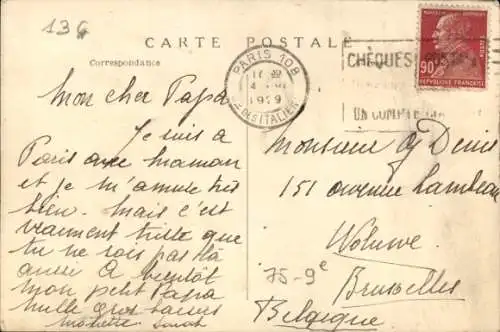 136
CARTE POSTALE
Correspondance
PARIS 108
1929
B. DES ITALIENS
CHÈQUES POSTAUX
UN COMPTE
90
POSTES
REPUBLIQUE FRANÇAISE
Mon cher Papa
Je suis à
Paris avec maman
et je m'amuse très
bien. Mais c'est
vraiment triste que
tu ne sois pas là
aussi A bientôt
mon petit Papa
mille gros baisers
Monsieur G Denis
151 avenue Lambeau
Woluwe.
75-9e
Bruxelles
Belgique